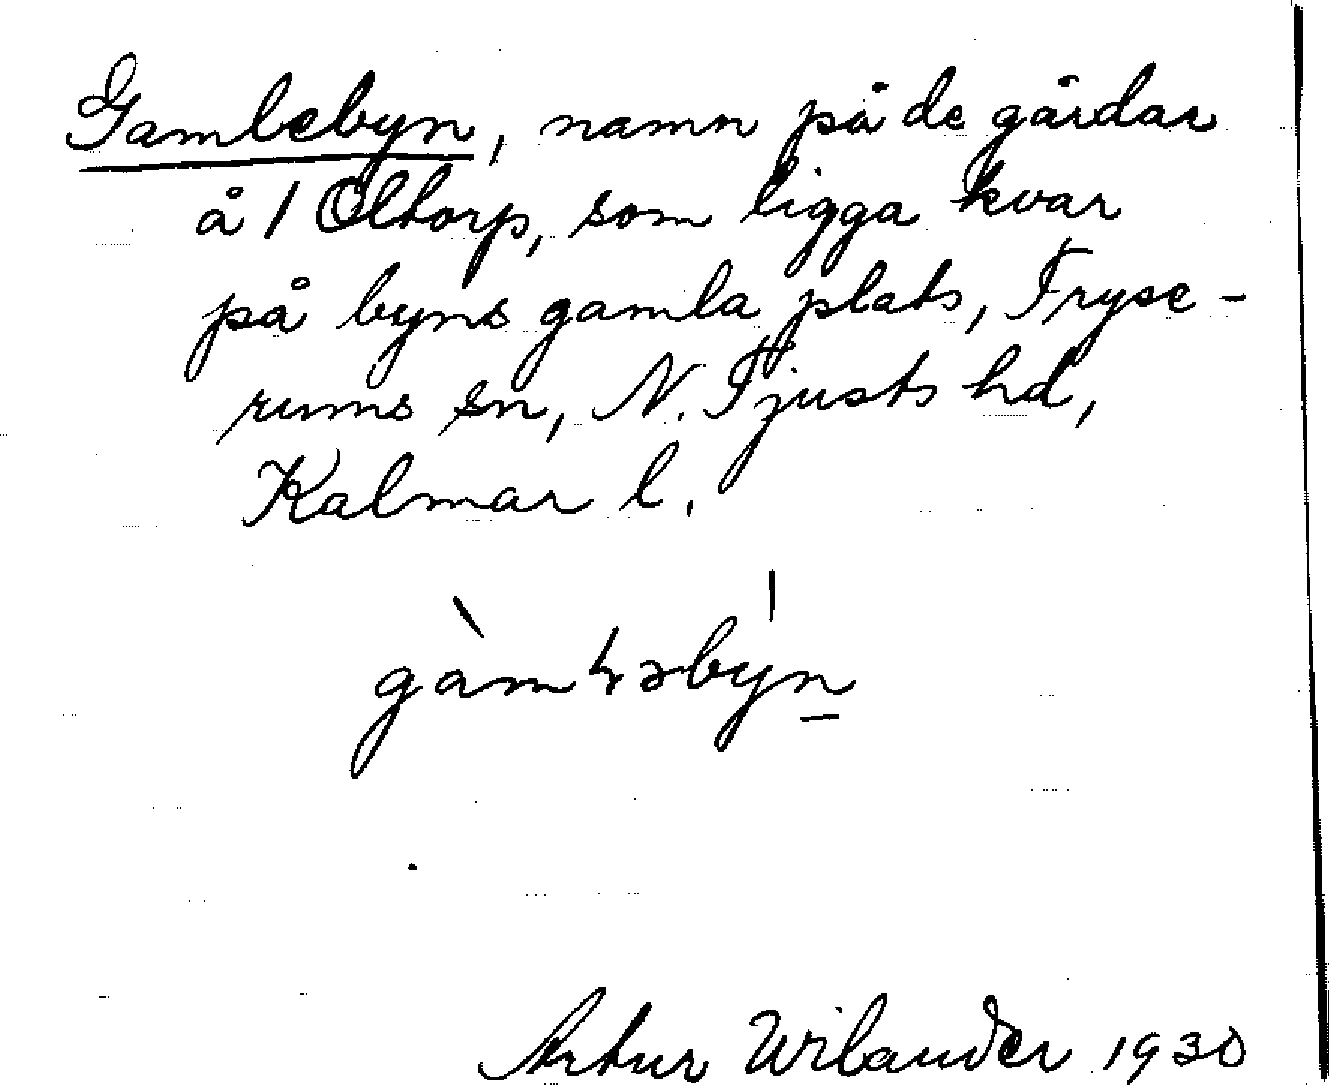 Gamlebyn, namn på de gårdar
å 1 Oltorp, som ligga kvar
på byns gamla plats, Tryse-
rums sn, N. Tjusts hd,
Kalmar l.
Artur Wilander 1930